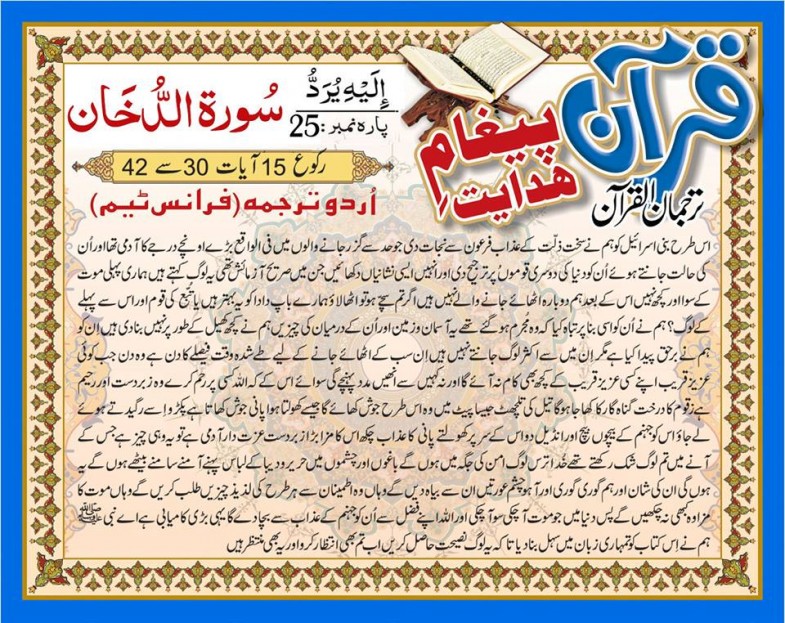 قرآن
پیغامِ ھدایت
ترجمان القرآن
إِلَيْهِ يُرَدُّ
پارہ نمبر :25
سُورۃ الدُّخَان
رکوع 15 آیات 30 سے 42
اُردو ترجمہ (فرانس ٹیم)
اس طرح بنی اسرائیل کو ہم نے سخت ذلّت کے عذاب فرعون سے نجات دی جو حد سے گزر جانے والوں میں فی الواقع بڑے اونچے درجے کا آدمی تھا اور اُن
کی حالت جانتے ہوئے اُن کو دنیا کی دوسری قوموں پر ترجیح دی اور انہیں ایسی نشانیاں دکھائیں جن میں صریح آزمائش تھی یہ لوگ کہتے ہیں ہماری پہلی موت
کے سوا اور کچھ نہیں اس کے بعد ہم دوبارہ اٹھائے جانے والے نہیں ہیں اگر تم سچے ہو تو اٹھا لاؤ ہمارے باپ دادا کو یہ بہتر ہیں یا تُبّع کی قوم اور اس سے پہلے
کے لوگ؟ ہم نے اُن کو اسی بنا پر تباہ کیا کہ وہ مُجرم ہو گئے تھے یہ آسمان و زمین اور اُن کے درمیان کی چیزیں ہم نے کچھ کھیل کے طور پر نہیں بنا دی ہیں ان کو
ہم نے برحق پیدا کیا ہے مگر اِن میں سے اکثر لوگ جانتے نہیں ہیں اِن سب کے اٹھائے جانے کے لیے طے شدہ وقت فیصلے کا دن ہے وہ دن جب کوئی
عزیز قریب اپنے کسی عزیز قریب کے کچھ بھی کام نہ آئے گا اور نہ کہیں سے انھیں مدد پہنچے گی سوائے اس کے کہ اللہ کسی پر رحم کرے وہ زبردست اور رحیم
ہے زقوم کا درخت گناہ گار کا کھاجا ہوگا تیل کی تلچھٹ جیسا پیٹ میں وہ اس طرح جوش کھائے گا جیسے کھولتا ہوا پانی جوش کھاتا ہے پکڑو اِسے رگیدتے ہوئے
لے جاؤ اس کو جہنم کے بیچوں بیچ اور انڈیل دو اس کے سر پر کھولتے پانی کا عذاب چکھ اس کا مزا بڑا زبردست عزت دار آدمی ہے تو یہ وہی چیز ہے جس کے
آنے میں تم لوگ شک رکھتے تھے خُدا ترس لوگ امن کی جگہ میں ہوں گے باغوں اور چشموں میں حریر و دیبا کے لباس پہنے آمنے سامنے بیٹھے ہوں گے یہ
ہوں گی ان کی شان اور ہم گوری گوری اور آہو چشم عورتیں ان سے بیاہ دیں گے وہاں وہ اطمینان سے ہر طرح کی لذیذ چیزیں طلب کریں گے وہاں موت کا
مزا وہ کبھی نہ چکھیں گے پس دنیا میں جو موت آ چکی سو آ چکی اور اللہ اپنے فضل سے اُن کو جہنم کے عذاب سے بچا دے گا یہی بڑی کامیابی ہے اے نبی ﷺ
ہم نے اِس کتاب کو تمہاری زبان میں سہل بنا دیا تا کہ یہ لوگ نصیحت حاصل کریں اب تم بھی انتظار کرو اور یہ بھی منتظر ہیں